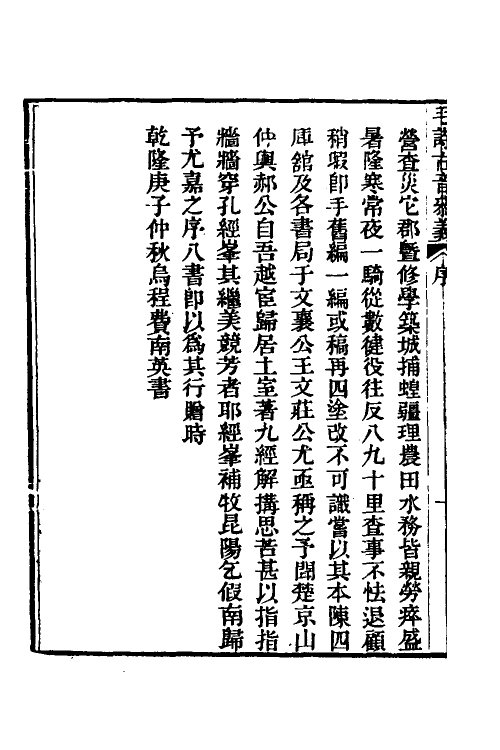 毛詩古音參義
序
一
營查災它郡暨修學築城捕蝗疆理農田水務皆親勞瘁盛
暑隆寒常夜一騎從數健役往反八九十里查事不怯退顧
稍暇卽手舊編一編或稿再四塗改不可識嘗以其本陳四
庫舘及各書局于文襄公王文莊公尤亟稱之予聞楚京山
仲輿郝公自吾越宦歸居土室著九經解搆思苦甚以指指
牆牆穿孔經峯其繼美競芳者耶經峯補牧昆陽乞假南歸
予尤嘉之序八書卽以爲其行贈時
乾隆庚子仲秋烏程費南英書